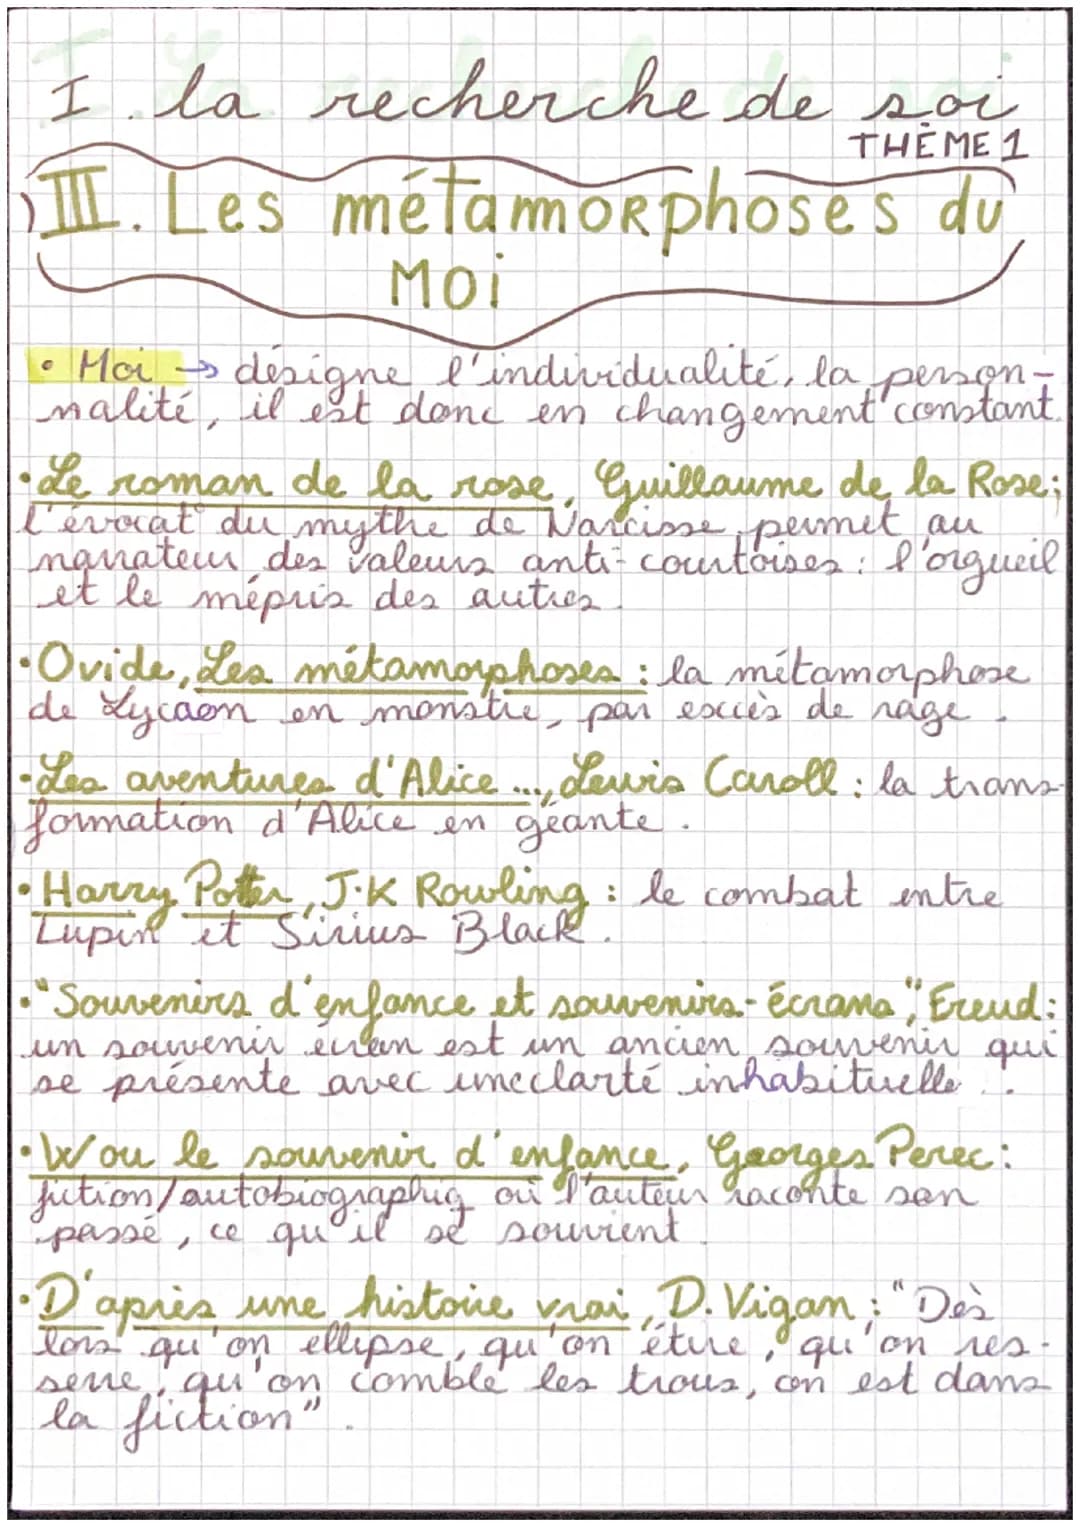 I. la recherche de soi
THÈME 1
III. Les métamorphoses du
Moi
• Moi → désigne l'individualité, la person-
nalité, il est donc en changement constant.
• Le roman de la rose, Guillaume de la Rose ;
l'évocat° du mythe de Narcisse permet au
narrateur des valeurs anti-courtoises : l'orgueil
et le mépris des autres.
• Ovide, Les métamorphoses : la métamorphose
de Lycaon en monstre, par excès de rage.
• Les aventures d'Alice ..., Lewis Caroll : la trans-
formation d'Alice en géante.
• Harry Potter, J.K Rowling : le combat entre
Lupin et Sirius Black.
• "Souvenirs d'enfance et souvenirs-écrans", Freud :
un souvenir écran est un ancien souvenir qui
se présente avec une clarté inhabituelle ..
• W ou le souvenir d'enfance, Georges Perec :
fiction/autobiographiq où l'auteur raconte son
passé, ce qu'il se souvient.
• D'après une histoire vrai, D. Vigan : "Dès
lors qu'on ellipse, qu'on étire, qu'on res-
serre, qu'on comble les trous, on est dans
la fiction".